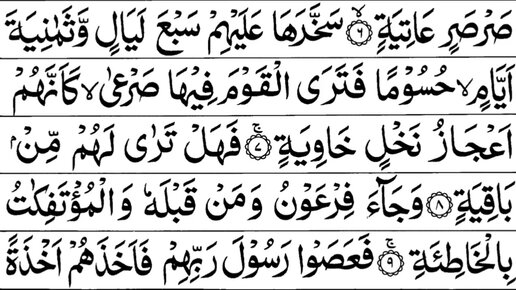 صَرْصَرٍ عَاتِيَةٍ ۙ﴿۶﴾ سَخَّرَهَا عَلَيْهِمْ سَبْعَ لَيَالٍ وَّثَمٰنِيَةَ
اَيَّامٍ ۙ حُسُوْمًا فَتَرَى الْقَوْمَ فِيْهَا صَرْعٰى ۙ كَاَنَّهُمْ
اَعْجَازُ نَخْلٍ خَاوِيَةٍ ۚ﴿۷﴾ فَهَلْ تَرٰى لَهُمْ مِّنْۢ
بَاقِيَةٍ ﴿۸﴾ وَجَآءَ فِرْعَوْنُ وَمَنْ قَبْلَهٗ وَالْمُؤْتَفِكٰتُ
بِالْخَاطِئَةِ ۚ﴿۹﴾ فَعَصَوْا رَسُوْلَ رَبِّهِمْ فَاَخَذَهُمْ اَخْذَةً